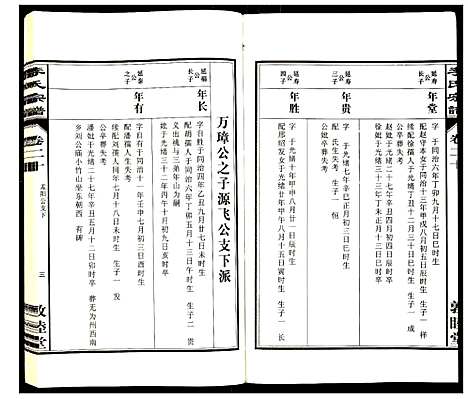 李氏宗譜
卷二十
敦睦堂
延寿公長子
年堂
字 于同治六年丁卯九月十七日巳时生
配赵守本女于同治十三年甲戌八月初五日辰时生 生子一 样
续配徐孺人于光绪 三十日巳时生 生子一 成
赵妣于光绪二十七年辛丑四月初四日辰时卒
徐妣于光绪三十三年丁未正月初十日巳时卒
公卒葬失考
延寿公三子
年贵
字 于光绪七年辛巳正月初三日生
配 氏生失考 生子一
公妣卒葬失考
延寿公四子
年胜
字 于光绪十年甲申八月廿一日辰时生
配廖绍发女于光绪 年 八月十五日寅时生 生子一 长
万璋公之子源飞公支下派
延福公長子
年长
字自胜于同治四年乙丑九月廿七日未时生
配胡孺人于同治六年丁卯五月十三日午时生 生子二 贵
义出桃与三弟年山为嗣
妣于光绪三十二年丙午十月初九日亥时卒
延泰公之子
年有
字自有于同治十一年壬申七月初三日酉时生
配潘孺人生失考
续配刘孺人同年七月十八日未时生 生子一 发
公卒葬失考
潘妣于光绪二十七年辛丑五月十二日卯时卒 葬无为州西南
乡刘公庙小竹山坐东朝西 有碑
李氏宗譜
卷二十
孟阳公支下
三
敦睦堂